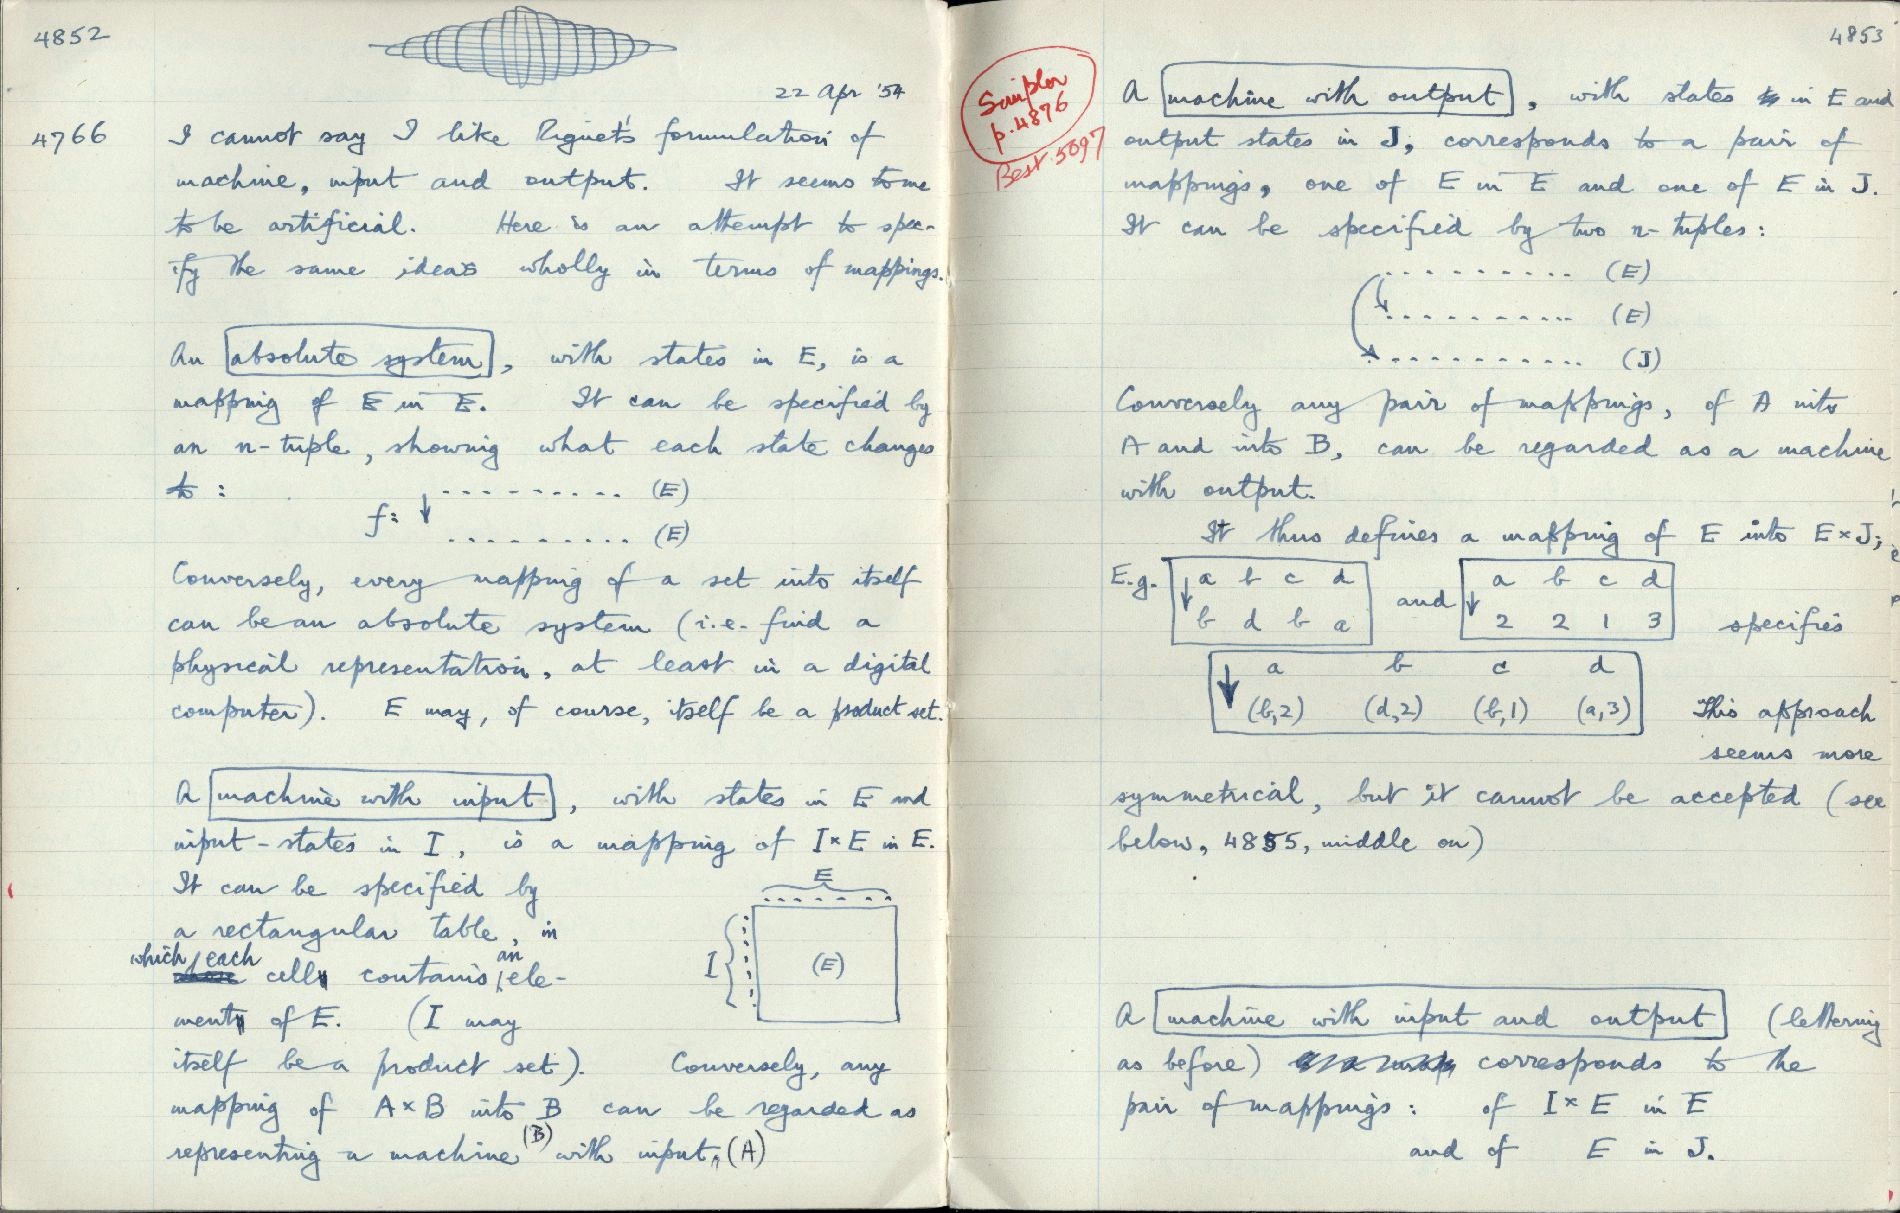 4852
22 Apr '54
4766
I cannot say I like Riguet's formulation of
machine, input and output. It seems to me
to be artificial. Here is an attempt to spec-
ify the same ideas wholly in terms of mappings.
An absolute system, with states in E, is a
mapping of E in E. It can be specified by
an n-tuple, showing what each state changes
to:
.......... (E)
f: ↓
.......... (E)
Conversely, every mapping of a set into itself
can be an absolute system (i.e. find a
physical representation, at least in a digital
computer). E may, of course, itself be a product set.
A machine with input, with states in E and
input-states in I, is a mapping of I×E in E.
It can be specified by
a rectangular table, in
which each cell contains an ele-
ment of E. (I may
itself be a product set). Conversely, any
mapping of A×B into B can be regarded as
representing a machine (B) with input (A)
E
I
(E)
4853
Simpler
p.4876
Best 5097
A machine with output, with states in E and
output states in J, corresponds to a pair of
mappings, one of E in E and one of E in J.
It can be specified by two n-tuples:
.......... (E)
.......... (E)
.......... (J)
Conversely any pair of mappings, of A into
A and into B, can be regarded as a machine
with output.
It thus defines a mapping of E into E×J;
E.g. ↓ a b c d and ↓ a b c d
b d b a 2 2 1 3 specifies
↓ a b c d
(b,2) (d,2) (b,1) (a,3) This approach
seems more
symmetrical, but it cannot be accepted (see
below, 4855, middle on)
A machine with input and output (lettering
as before) corresponds to the
pair of mappings: of I×E in E
and of E in J.